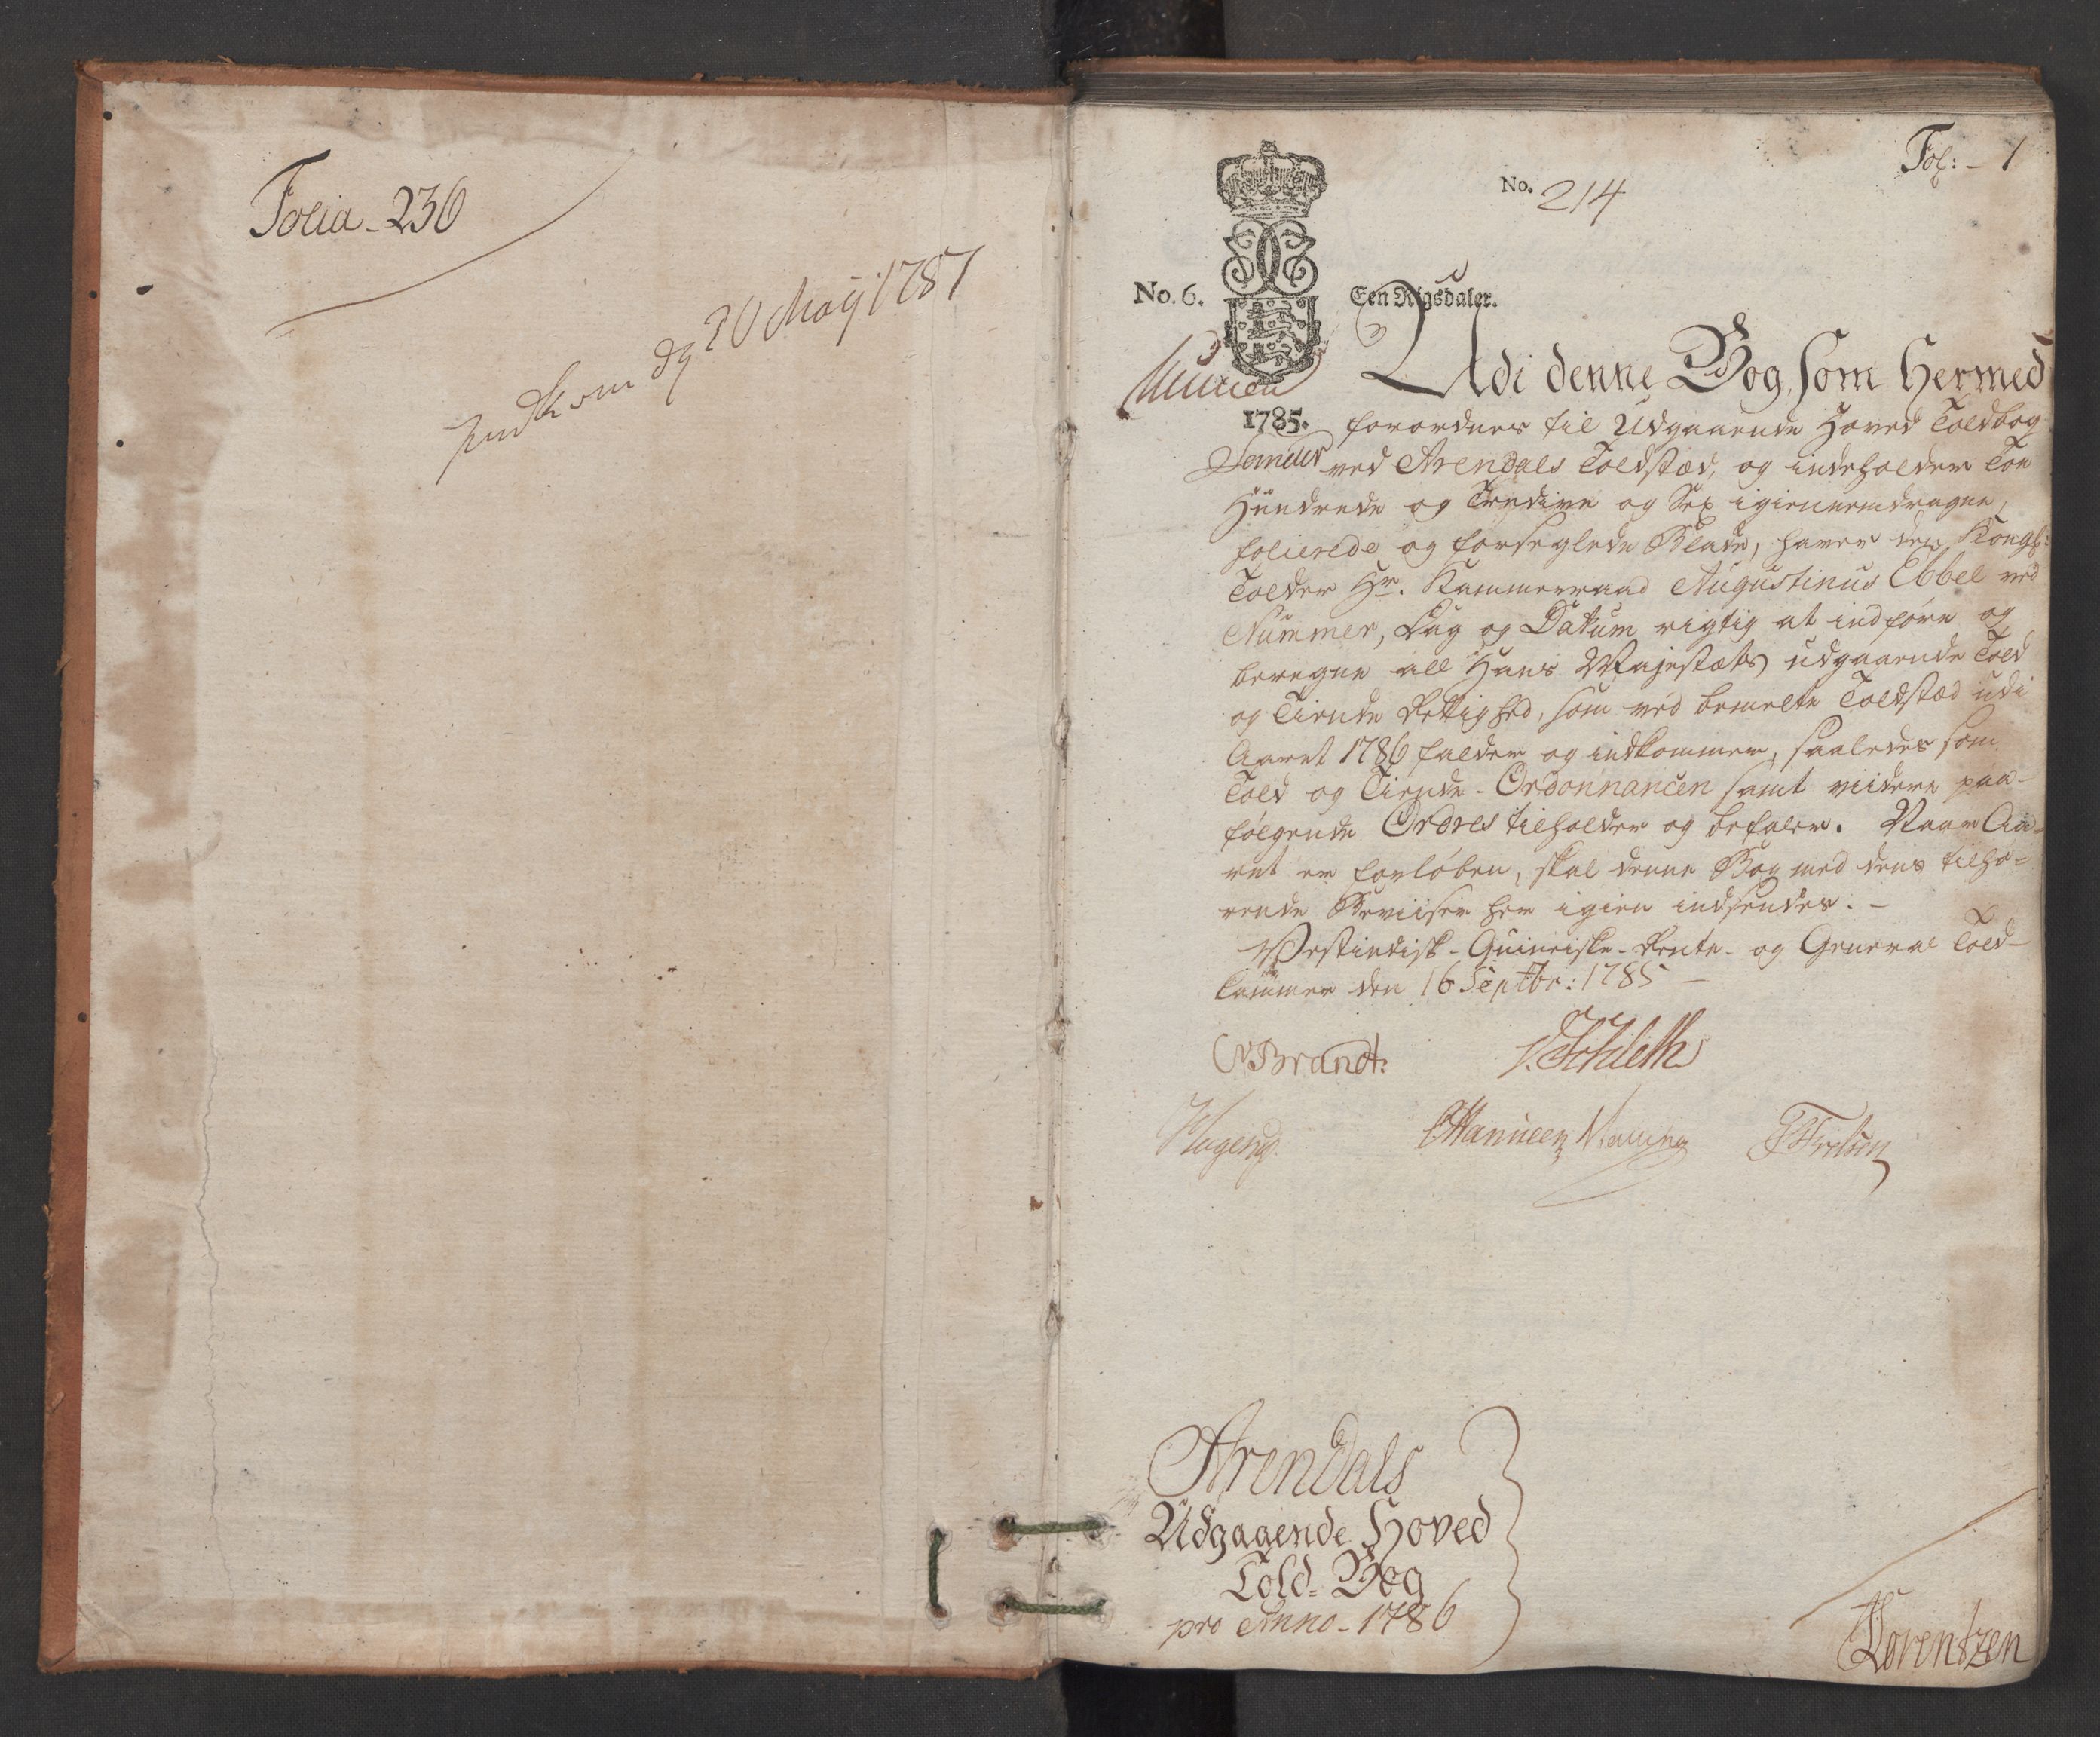 Folia - 236
Indkom d 20 Maij 1787
Fol: - 1
No. 214
No. 6.
Een Rigsdaler.
1785.
Udi denne Bog, som hermed
forordnes til Udgaaende Hoved Toldbog
ved Arendals Toldstæd, og indeholder Toe
Hundrede og Tredive og Sex igiennemdragne,
folierede og forseglede Blade, haver den Kongl:
Tolder Hr. Kammerraad Augustinus Ebbel ved
Nummer, Dag og Datum rigtig at indføre og
beregne all Hans Majestæts udgaaende Told
og Tiende Rettighed, som ved bemelte Toldstæd udi
Aaret 1786 falder og indkommer, saaledes som
Told og Tiende-Ordonnancen samt viidere paa-
følgende Ordres tilholder og befaler. Naar Aa-
ret er forløben, skal denne Bog med dens tilhø-
rende Beviiser her igien indsendes. -
Vestindisk-Guineiske-Rente- og General Told-
kammer den 16 Septbr: 1785 -
Brandt:
Arendals
Udgaaende Hoved
Told-Bog
pro Anno - 1786
Lorentzen